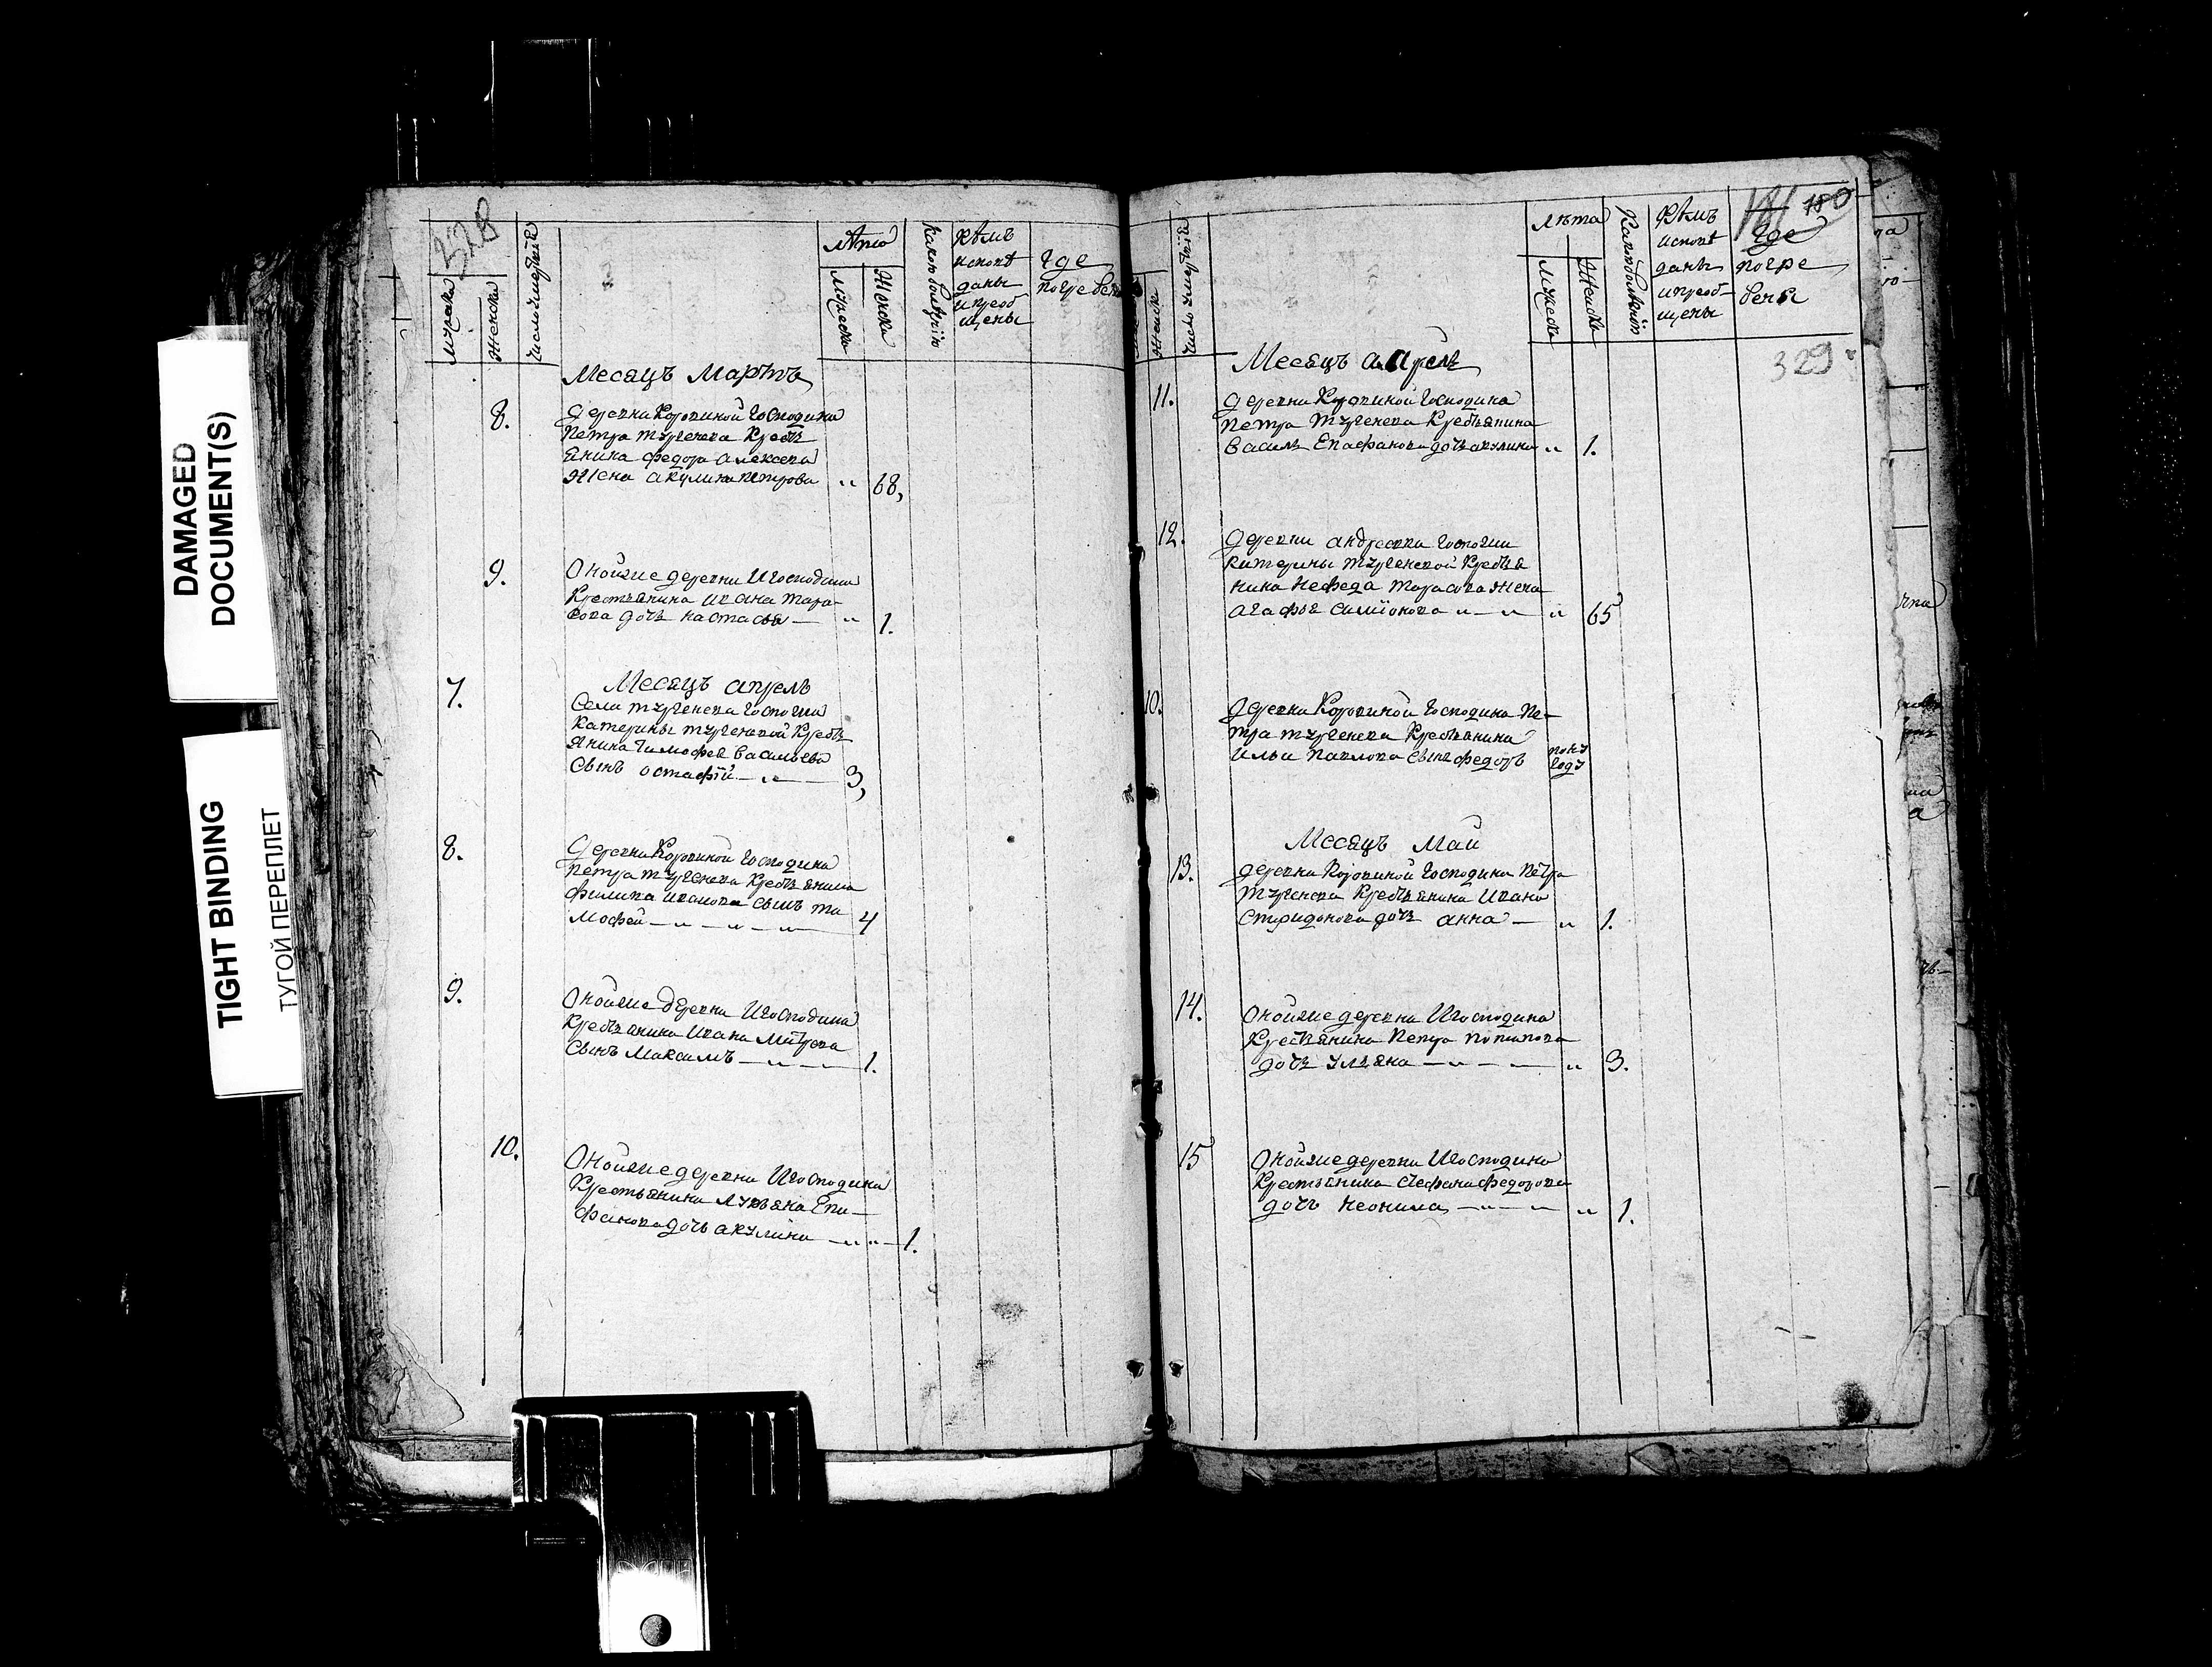 DAMAGED
DOCUMENT(S)
TIGHT BINDING
ТУГОЙ ПЕРЕПЛЕТ
328
мужеска
женска
число умертвій
лѣта
мужеска
женска
какою болѣзнію
кѣмъ
исповѣ
даны
и преоб
щены
где
погребены
Месяцъ Мартъ
8.
деревни Коровиной господина
Петра тургенева кресть
янина федора алексеева
жена акулина петрова " 68,
9.
Оной же деревни и господина
Крестьянина ивана тара-
сова дочь настасья — " 1.
Месяцъ апрель
7.
Села тургенева госпожи
катерины тургеневой кресть
янина тимофея васильева
сынъ остафїй — " — 3,
8.
деревни Коровиной господина
Петра тургенева крестьянина
филипа иванова сынъ ти
мофей — " — " — " — 4
9.
Оной же деревни и господина
крестьянина ивана митрева
сынъ максимъ — " — — 1.
10.
Оной же деревни и господина
Крестьянина лукьяна Епи-
фанова дочь акулина — " " — 1.
женска
число умертвія
лѣта
мужеска
женска
какою болѣзнію
кѣмъ
исповѣ
даны
и преоб-
щены
180
где
погре
бены
329
Месяцъ апрель
11.
деревни Коровиной господина
Петра тургенева крестьянина
василья Епафанова дочь акулина " 1.
12.
деревни андреевки госпожи
катерины тургеневой крестья
нина нефеда тарасова жена
агафья симїонова " — " — " 65
10.
деревни Коровиной господина пе-
тра тургенева крестьянина
ильи павлова сынъ федоръ
полу
году
Месяцъ Май
13.
деревни Коровиной господина петра
тургенева крестьянина ивана
спиридонова дочь анна — " 1.
14.
Оной же деревни и господина
крестьянина петра потапова
дочь ульяна — " — — " 3.
15
Оной же деревни и господина
крестьянина стефана федорова
дочь неонила — " — " — " 1.